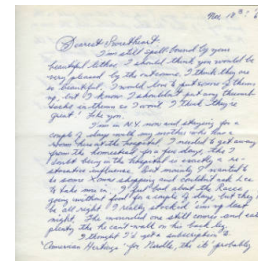 Nov 18th
Dearest Sweetheart
I'm still spell bound by your
beautiful letter. I should think you would be
very pleased by the outcome. I think they are
so beautiful. I would love to put some of them
up, but I know I shouldn't put any
in them as I want. I think they're
great & like you.
I am in N.Y. now and staying for a
couple of days with my mother who has a
room here at the hospital. I needed to get away
from the homestead for a few days, tho I
doubt being in the hospital is exactly a re-
storative influence. But mainly I wanted to
do some Xmas shopping and couldn't ask
to take me in. I feel bad about the
going without food for a couple of days, but they'll
be all right. I really stocked 'em up last
night. The wounded one still comes and eats
plenty tho he can't walk on his back leg.
I thought I'd get a subscription to
"American Heritage" for tho it'd probably